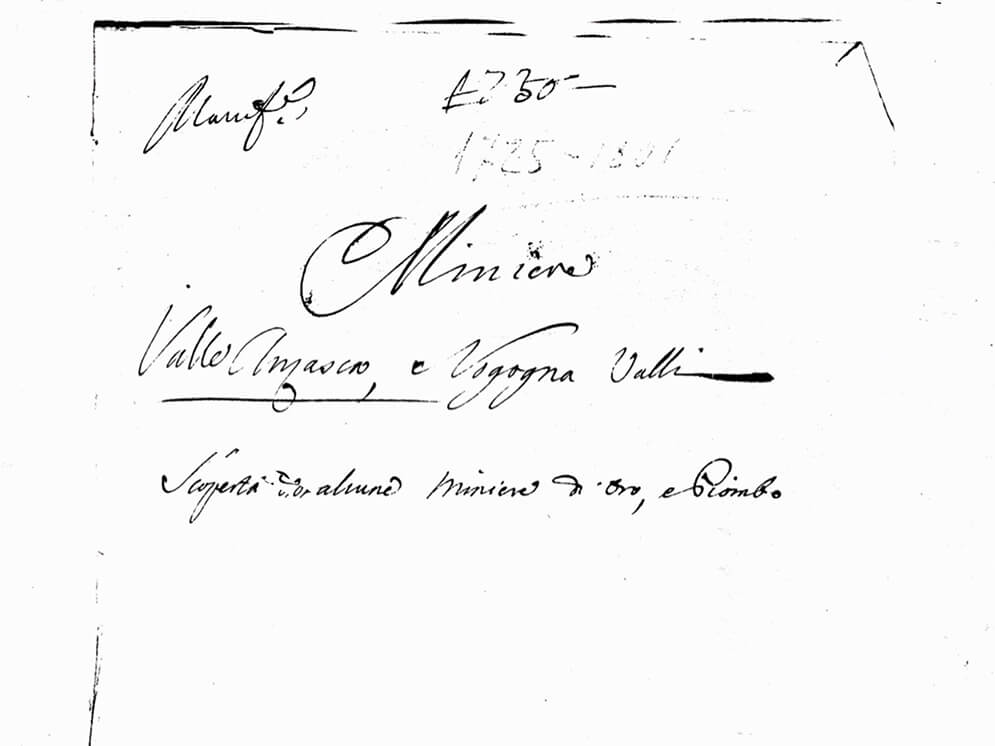 1730
1725-1801
Miniere
Valle Anzasca, e Vogogna Valli
Scoperta d'alcune miniere di oro, e Piombo